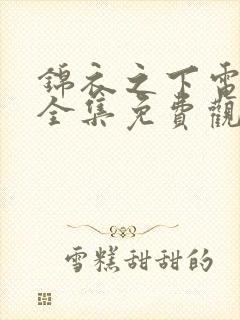 錦衣之下電
全集免費觀
雪糕甜甜的